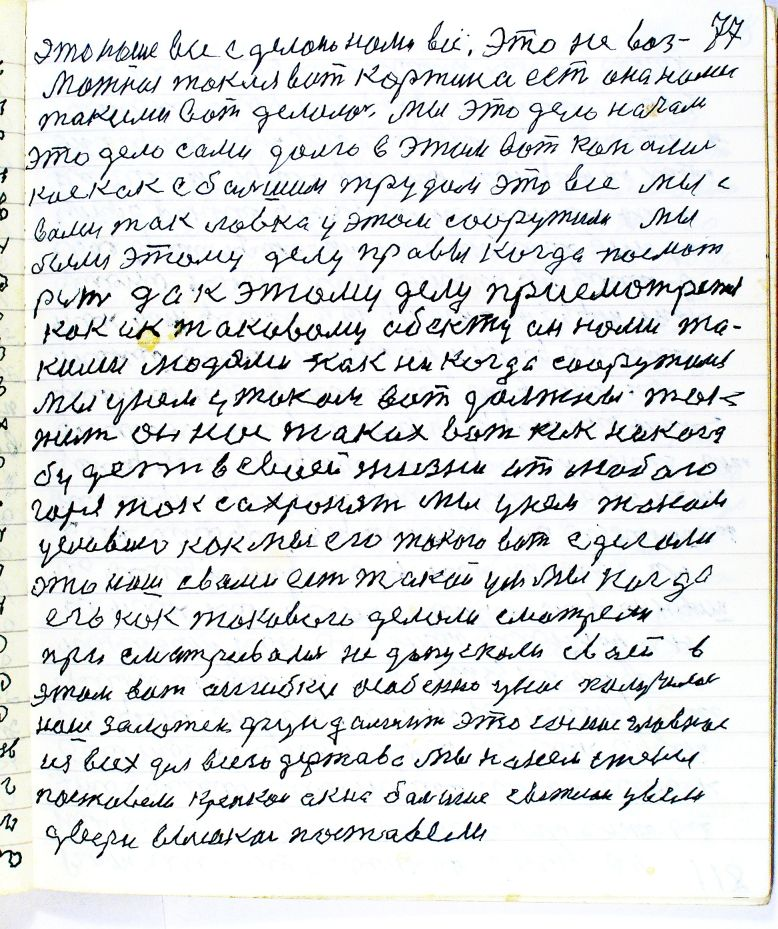 77
это наше все сделано нами всё. Это не воз-
можны такия вот картина ест она нами
такими вот делалас. Мы это дело начали
это дело сами долго в этом вот капались
кое как с большим трудом это все мы с
вами так ловка у этом сооружили мы
были этому делу правы когда посмот
рит да к этому делу присмотрется
как ик таковому обекту он нами та-
кими людями как никогда сооружился
мы у нем у таком вот должны так
жит он нас таких вот как никогд
будет в своей жизни от любого
горя так сахранят мы у нем таком
условию как мы его такого вот сделали
это наш свами ест такой мы когда
его как такового делали смотрели
присматривалис не допускали своей в
этом вот ашибки особенно у нас получился
наш заложен фундамент это самое главное
из всех дел всего держава мы на нем стены
поставели крепкои акна большие светлыи увели
двери высокаи поставели